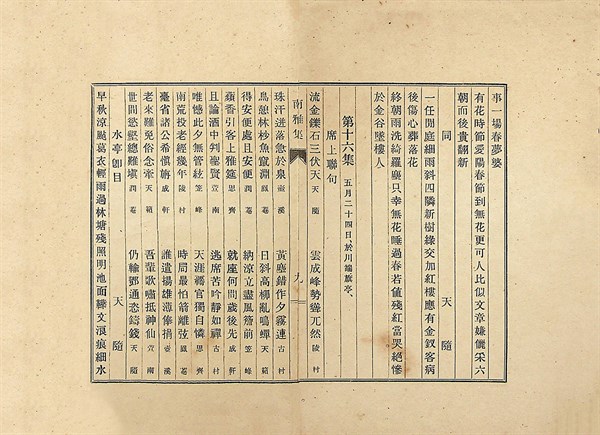 事一場春夢婆
有花時節愛陽春節到無花更可人比似文章嫌儷采六
朝而後貴翻新
同 天隨
一任閒庭細雨斜四隣新樹綠交加紅樓應有金釵客病
後傷心葬落花
終朝雨洗綺羅塵只幸無花唾過春若值殘紅當哭絕慘
於金谷墜樓人
第十六集 五月二十四日、於川端旗亭、
席上聯句
流金鑠石三伏天 天隨 雲成峰勢聳兀然 陵村
南雅集 九
珠汗迸落急於泉 壺溪 黃塵錯作夕霧連 古村
鳥憩林杪魚竄淵 鳳菴 日斜高柳亂鳴蟬 天籟
得安便處且安便 潤菴 納涼立盡風簷前 笠峰
蘋香引客上雅筵 思齊 就座何問歲後先 成軒
且論酒中判聖賢 萱南 逃席苦吟靜如禪 古村
唯憾此夕無管絃 笠峰 天涯獨官獨自憐 思齊
南荒投老經幾年 陵村 時局最怕箭離弦 鳳菴
臺省諸公希慎旃 成軒 誰遣揚雄薄俸捐 壺溪
老來難免俗念牽 天籟 吾輩歌嘯抵神仙 萱南
世間慾壑總難塡 潤菴 仍輸鄧通恣鑄錢 天隨
水亭卽目 天隨
早秋涼颸葛衣輕雨過林塘殘照明池面皺文浪痕細水